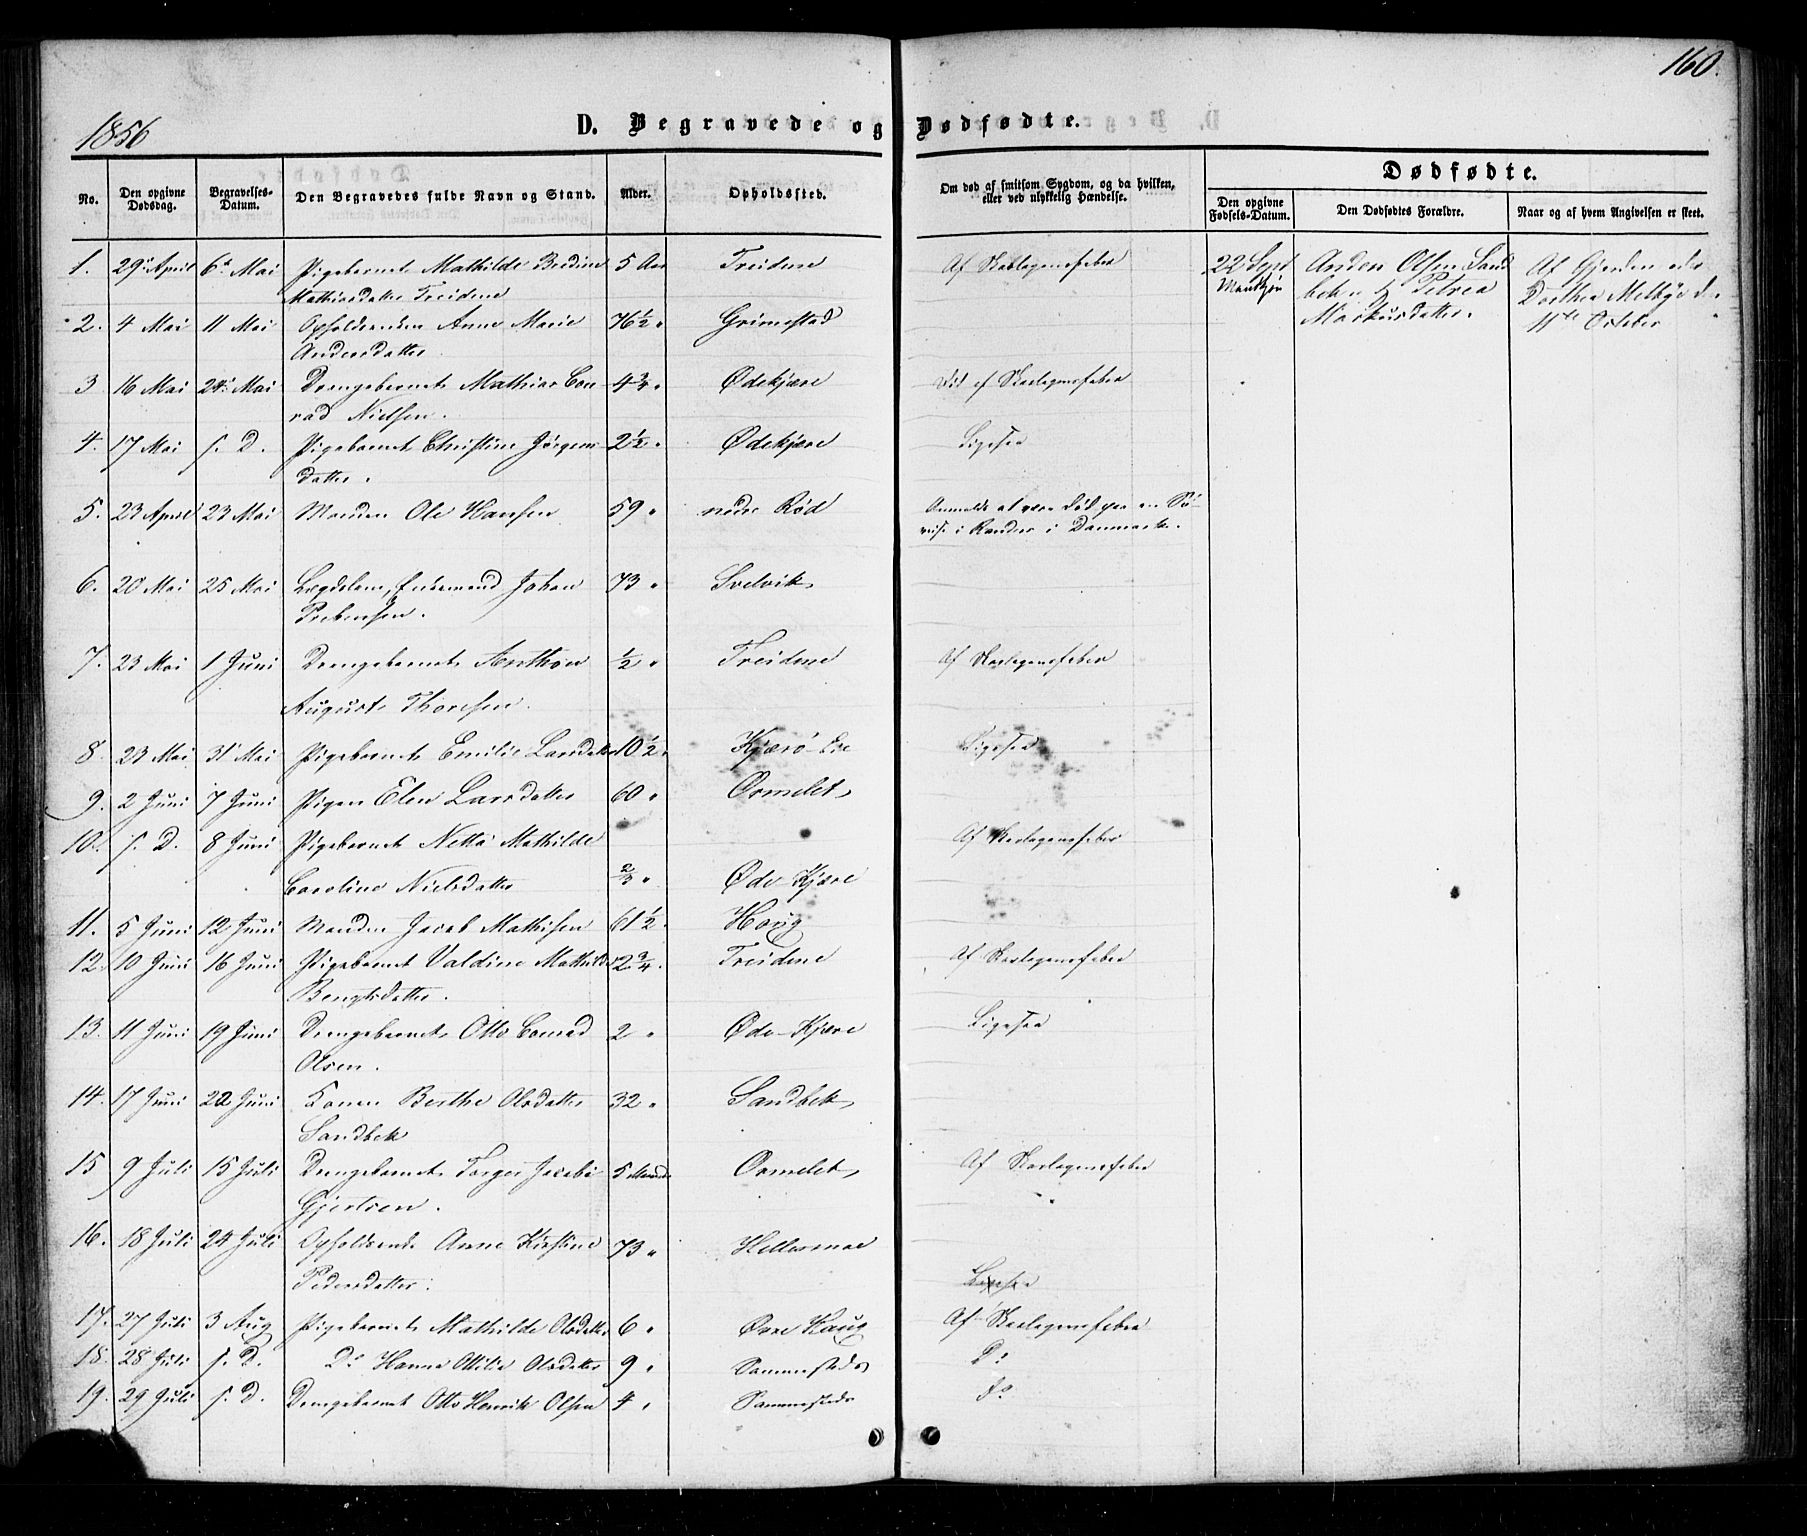 160.
1856
D. Begravede og Dødfødte.
No.
Den opgivne Dødsdag.
Begravelses-Datum.
Den Begravedes fulde Navn og Stand.
Alder.
Opholdssted.
Om død af smitsom Sygdom, og da hvilken, eller ved ulykkelig Hændelse.
Dødfødte.
Den opgivne Fødsels-Datum.
Den Dødfødtes Forældre.
Naar og af hvem Angivelsen er skeet.
1. 29 April 6 Mai Pigebarnet Mathilde Berdine 5 Aar Treidene Af Skarlagensfeber 22 Sept Anders Olsen Sand
Mathiasdatter Treidene Mandkjøn bek og Petrea Dorthea Melbye d.
Markusdatter. 11te October
2. 4 Mai 11 Mai Anne Marie 76 1/2 " Grimestad
Andersdatter
3 16 Mai 24 Mai Drengebarnet Mathias Con 4 3/4 " Ødekjære Død af Skarlagensfeber
rad Nielsen.
4. 17 Mai s. D. Pigebarnet Christine Jørgens 2 1/2 " Ødekjære Ligesaa
datter.
5. 23 April 23 Mai Manden Ole Hansen 59 " nedre Rød Anmeldt at være død paa en Sø-
reise i Randers i Danmark.
6. 20 Mai 25 Mai Lægdslem, Enkemand Johan 73 " Svelvik
Prebensen.
7. 23 Mai 1 Juni Drengebarnet Anthon 1/2 " Treidene Af Skarlagensfeber
August Thoresen.
8. 23 Mai 31 Mai Pigebarnet Emilie Larsdatter 10 1/2 " Kjærø Ligesaa
9. 2 Juni 7 Juni Pigen Elen Larsdatter 60 " Ormelet
10. s. D. 8 Juni Pigebarnet Netta Mathilde Af Skarlagensfeber
Caroline Nielsdatter 2/3 " Øde-Kjære
11. 5 Juni 12 Juni Manden Jacob Mathisen 61 1/2 " Houg
12. 10 Juni 16 Juni Pigebarnet Valdine Mathilde 2 3/4 " Treidene Af Skarlagensfeber
Bengtsdatter.
13. 11 Juni 19 Juni Drengebarnet Otto Conrad 2 " Øde-Kjære Ligesaa
Olsen.
14. 17 Juni 22 Juni Konen Berthe Olsdatter 32 " Sandbek
Sandbek
15 9 Juli 15 Juli Drengebarnet Torger Jacobi 5 Maaneder Ormelet Af Skarlagensfeber
Gjertsen.
16. 18 Juli 24 Juli Anne Kirstine 73 " Hellesmoe
Pedersdatter. Ligesaa
17. 27 Juli 3 Aug Pigebarnet Mathilde Olsdatter 6 " Øvre Haug Af Skarlagensfeber
18. 28 Juli s. D. Do Hanna Ottilie Olsdatter 9 " Sammesteds Do
19. 29 Juli s. D. Drengebarnet Otto Henrik Olsen 4 " Sammesteds do